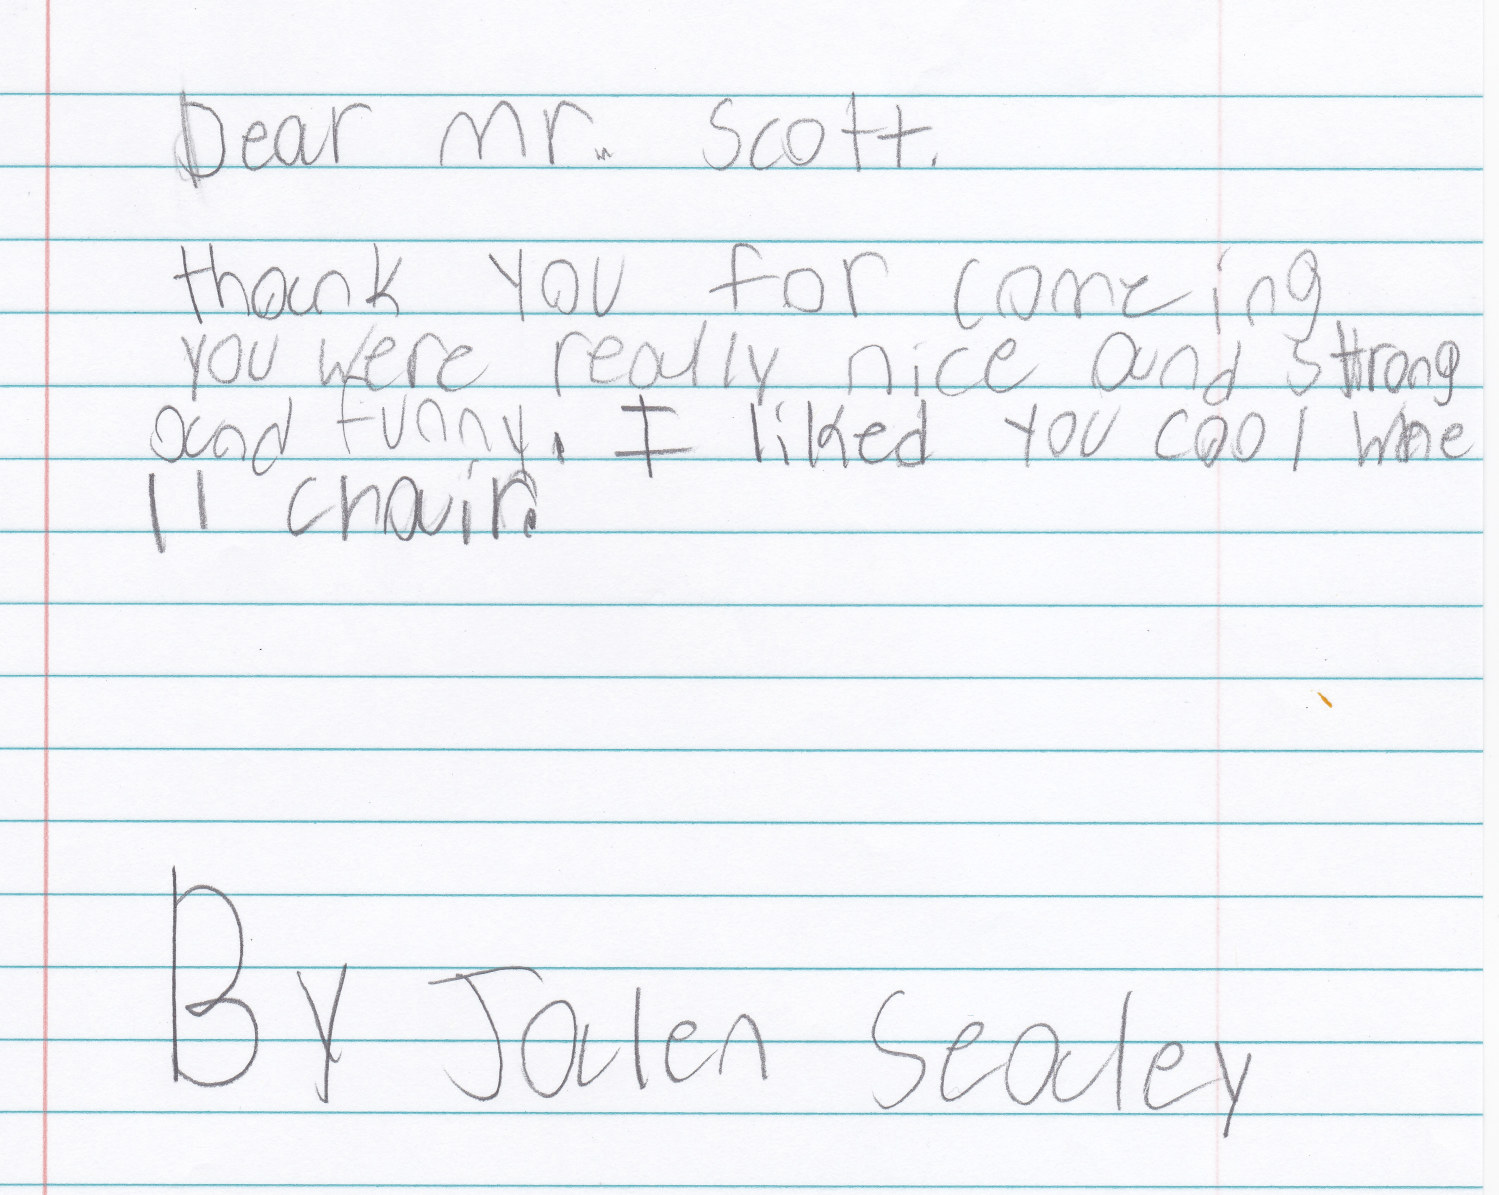 Dear Mr. Scott.
thank you for comeing
you were really nice and strong
and funny. I liked you cool whe
ll chair.
By Jalen Sealey